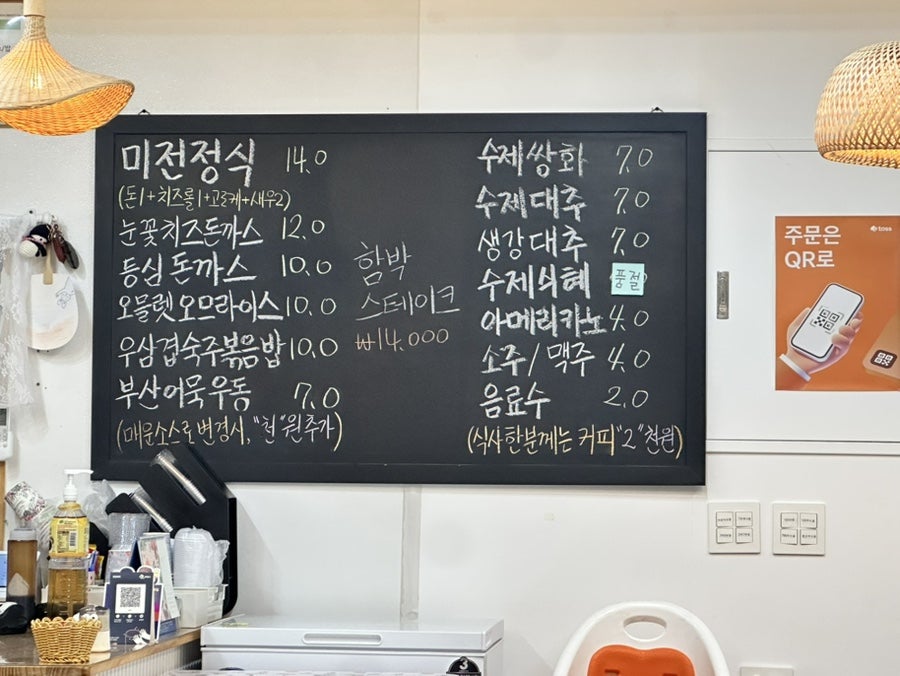 미전정식 14.0
(돈1+치즈롤1+고로케+새우2)
눈꽃치즈돈까스 12.0
등심돈까스 10.0
오믈렛오므라이스 10.0
우삼겹숙주볶음밥 10.0
부산어묵우동 7.0
(매운소스로변경시, "천"원추가)
함박
스테이크
₩14.000
수제쌍화 7.0
수제대추 7.0
생강대추 7.0
수제식혜 품절
아메리카노 4.0
소주/맥주 4.0
음료수 2.0
(식사한분께는 커피"2"천원)
주문은
QR로
toss
3